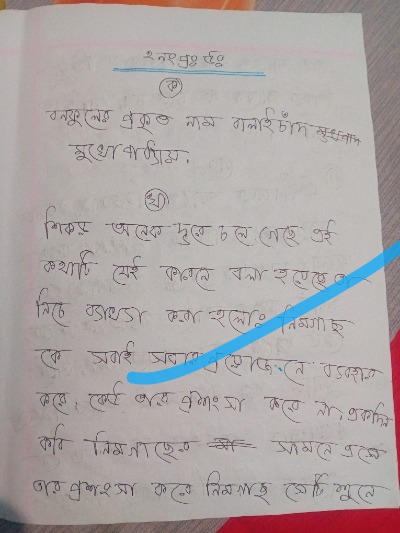 ২নং প্রঃ উঃ
ক
বনফুলের প্রকৃত নাম বলাইচাঁদ
মুখোপাধ্যায়.
খ
শিকড় অনেক দূরে চলে গেছে এই
কথাটি যেই কারনে বলা হয়েছে তা
নিচে ব্যাখ্যা করা হলোঃ নিমগাছ
কে সবাই সবার প্রয়োজনে ব্যবহার
করে, কেউ তার প্রশংসা করে না, একদিন
কবি নিমগাছের সামনে এসে
তার প্রশংসা করে নিমগাছ সেটি শুনে